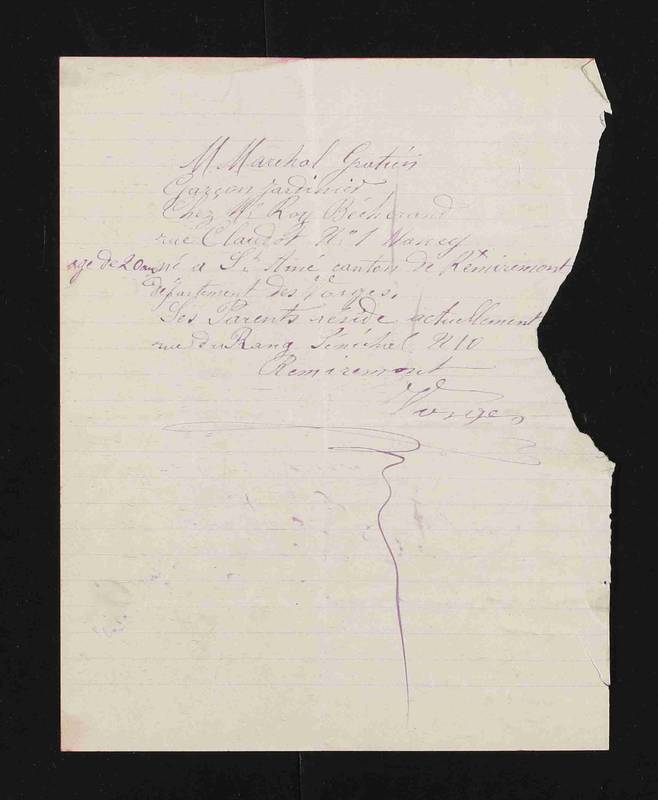 M Marchal Gratien
Garçon jardinier
Chez Mr Roy Bécherand
rue Claudot No 1 Nancy
age de 20 ans né a St Amé canton de Remiremont
département des Vosges.
Ses Parents réside actuellement
rue du Rang Sénéchal N 10
Remiremont
Vosges